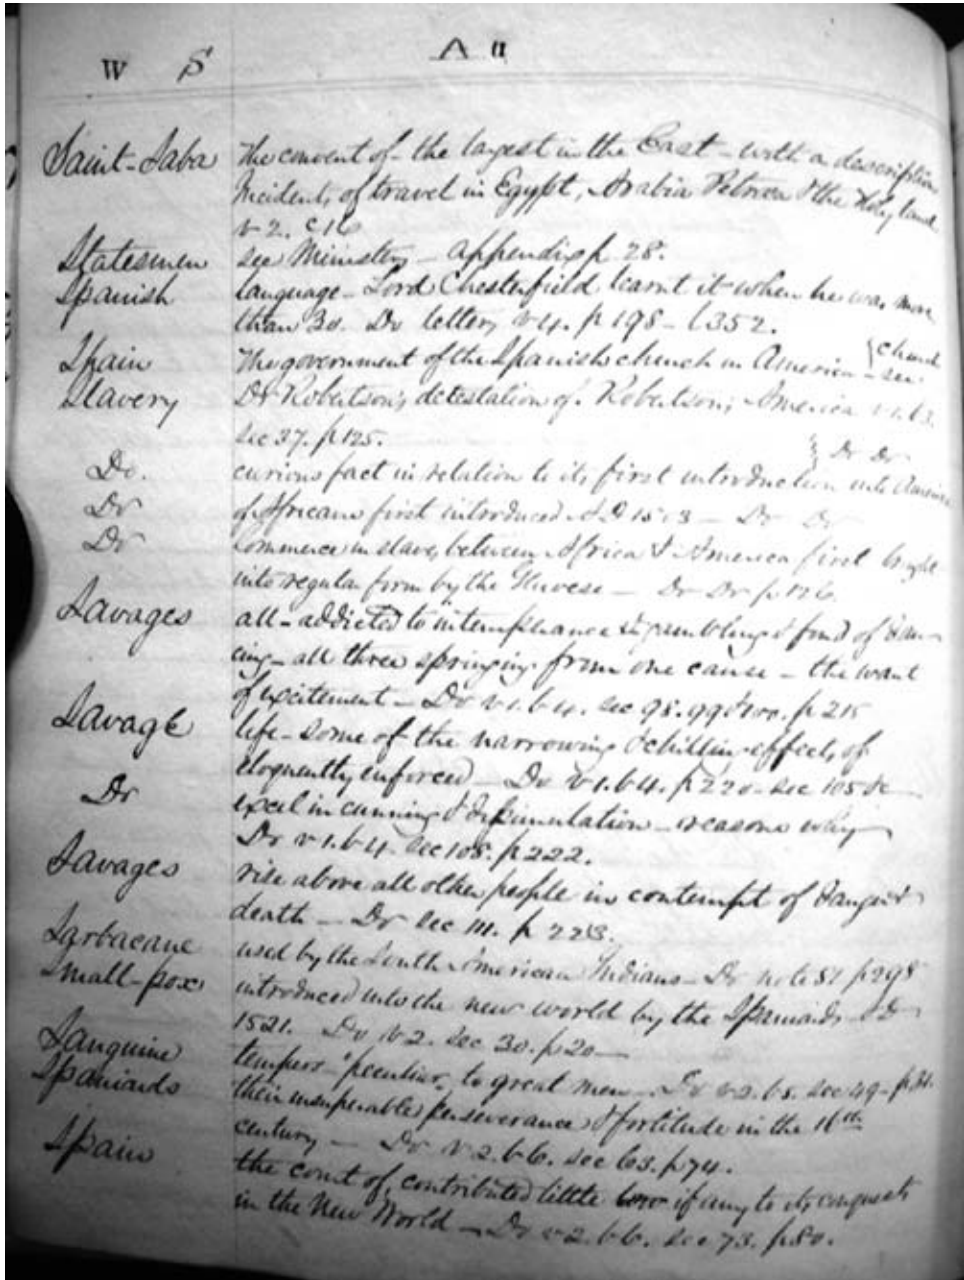 W S A a
Saint-Saba The convent of - the largest in the East - with a description
Incidents of travel in Egypt, Arabia Petræa & the Holy land
v 2. c 16
Statesmen see Ministers - appendix p 28.
Spanish language - Lord Chesterfield learnt it when he was more
than 30. Do letters v 4. p 198 - l 352.
Spain The government of the Spanish church in America - { Church see
Slavery Dr Robertson's detestation of. Robertson's America v 1. b 3.
sec 37. p 125.
Do. curious fact in relation to its first introduction into America } Do Do
Do of Africans first introduced A D 1503 - Do Do
Do Commerce in slaves between Africa & America first brought
into regular form by the Genoese - Do Do p 126.
Savages all - addicted to intemperance & gambling & fond of dan-
cing - all three springing from one cause - the want
of excitement - Do v 1. b 4. sec 98. 99 & 100. p 215
Savage life - some of the narrowing & chilling effects of
eloquently enforced - Do v 1. b 4. p 220 - sec 105 &c
Do excel in cunning & dissimulation - reasons why
Do v 1. b 4. sec 108. p 222.
Savages rise above all other people in contempt of danger &
death - Do sec 111. p 223.
Sarbacane used by the South American Indians - Do note 51 p 298
Small-pox introduced into the new world by the Spaniards A D
1521. Do v 2. sec 30. p 20 -
Sanguine tempers "peculiar" to great men - Do v 2. b 5. sec 49 - p
Spaniards their insuperable perseverance & fortitude in the 16th
century - Do v 2. b 6. sec 63. p 74.
Spain the court of, contributed little if any to its conquests
in the New World - Do v 2. b 6. sec 73. p 80.